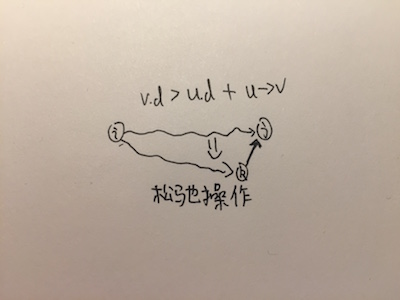 v.d > u.d + u→v
i j
k
松弛操作